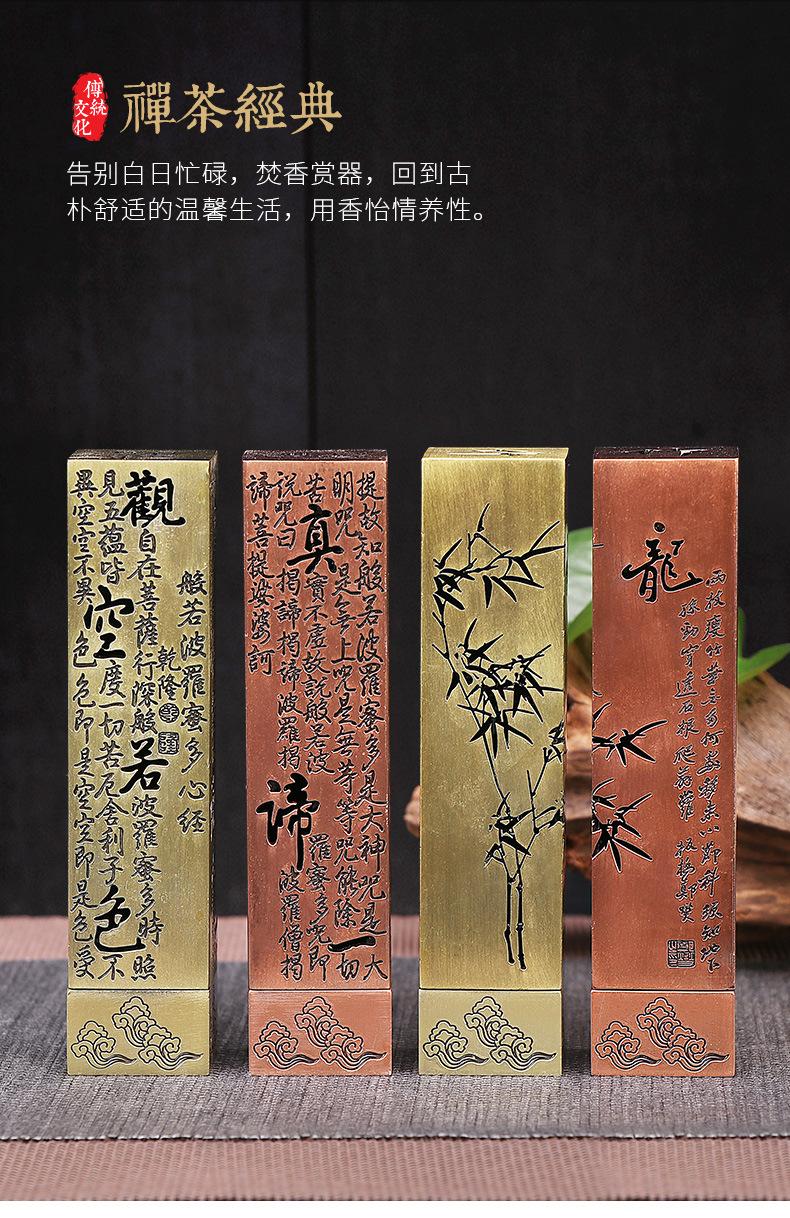 傳統
文化
禪茶經典
告别白日忙碌，焚香赏器，回到古
朴舒适的温馨生活，用香怡情养性。
般若波羅蜜多心经
乾隆
觀自在菩薩行深般若波羅蜜多時照
見五蕴皆空度一切苦厄舍利子色不
異空空不異色色即是空空即是色受
提故知般若波羅蜜多是大神咒是大
明咒是無上咒是無等等咒能除一切
苦真實不虚故説般若波羅蜜多咒即
説咒曰揭諦揭諦波羅揭諦波羅僧揭
諦菩提娑婆訶
龍
兩枝瘦竹葉
穿透石根爬薜蘿 板橋鄭燮